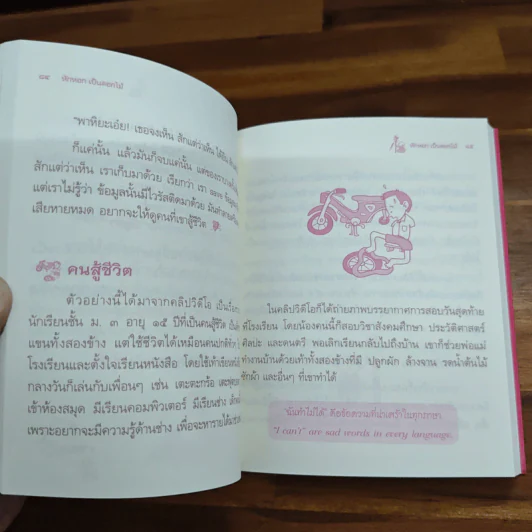 ๘๔ ฝึกนอก เป็นดอกไม้
"พาหิยะเอ๋ย! เธอจงเห็น สักแต่ว่าเห็น ได้ยิน
ก็แค่นั้น แล้วมันก็จบแค่นั้น แต่ของเรา
สักแต่ว่าเห็น เราเก็บมาด้วย เรียกว่า เรา save
แต่เราไม่รู้ว่า ข้อมูลนั้นมีไวรัสติดมาด้วย มัน
เสียหายหมด อยากจะให้ดูคนที่เขาสู้ชีวิต
คนสู้ชีวิต
ตัวอย่างนี้ได้มาจากคลิปวีดีโอ เป็น
นักเรียนชั้น ม. ๓ อายุ ๑๕ ปีที่เป็นคนสู้ชีวิต
แขนทั้งสองข้าง แต่ใช้ชีวิตได้เหมือนคนปกติ
โรงเรียนและตั้งใจเรียนหนังสือ โดยใช้เท้าเขียน
กลางวันก็เล่นกับเพื่อนๆ เช่น เตะตะกร้อ เตะฟุตบอล
เข้าห้องสมุด มีเรียนคอมพิวเตอร์ มีเรียนช่าง
เพราะอยากจะมีความรู้ด้านช่าง เพื่อจะหารายได้
ในคลิปวีดีโอก็ได้ถ่ายภาพบรรยากาศการสอบวันสุดท้าย
ที่โรงเรียน โดยน้องคนนี้ก็สอบวิชาสังคมศึกษา ประวัติศาสตร์
ศิลปะ และดนตรี พอเลิกเรียนกลับไปถึงบ้าน เขาก็ช่วยพ่อแม่
ทำงานบ้านด้วยเท้าทั้งสองข้างที่มี ปลูกผัก ล้างจาน รดน้ำต้นไม้
ซักผ้า และอื่นๆ ที่เขาทำได้
"ฉันทำไม่ได้" คือข้อความที่น่าเศร้าในทุกภาษา
"I can't" are sad words in every language.